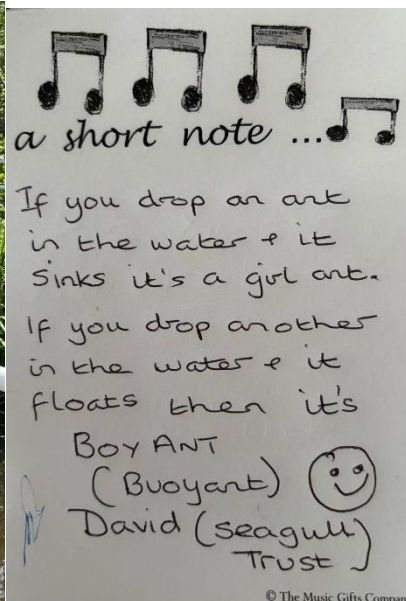 a short note ...
If you drop an ant
in the water & it
sinks it's a girl ant.
If you drop another
in the water & it
floats then it's
BOY ANT
(Buoyant)
David (seagull
Trust)
© The Music Gifts Compan